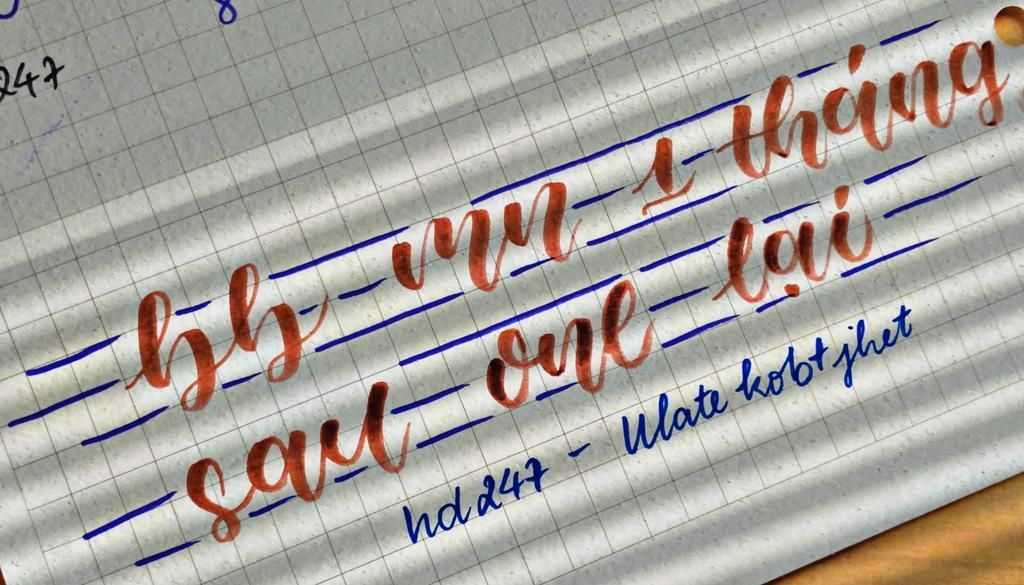 247
8
bb mn 1 tháng
sau onl lại
hd247 - Ulate kob+jhet